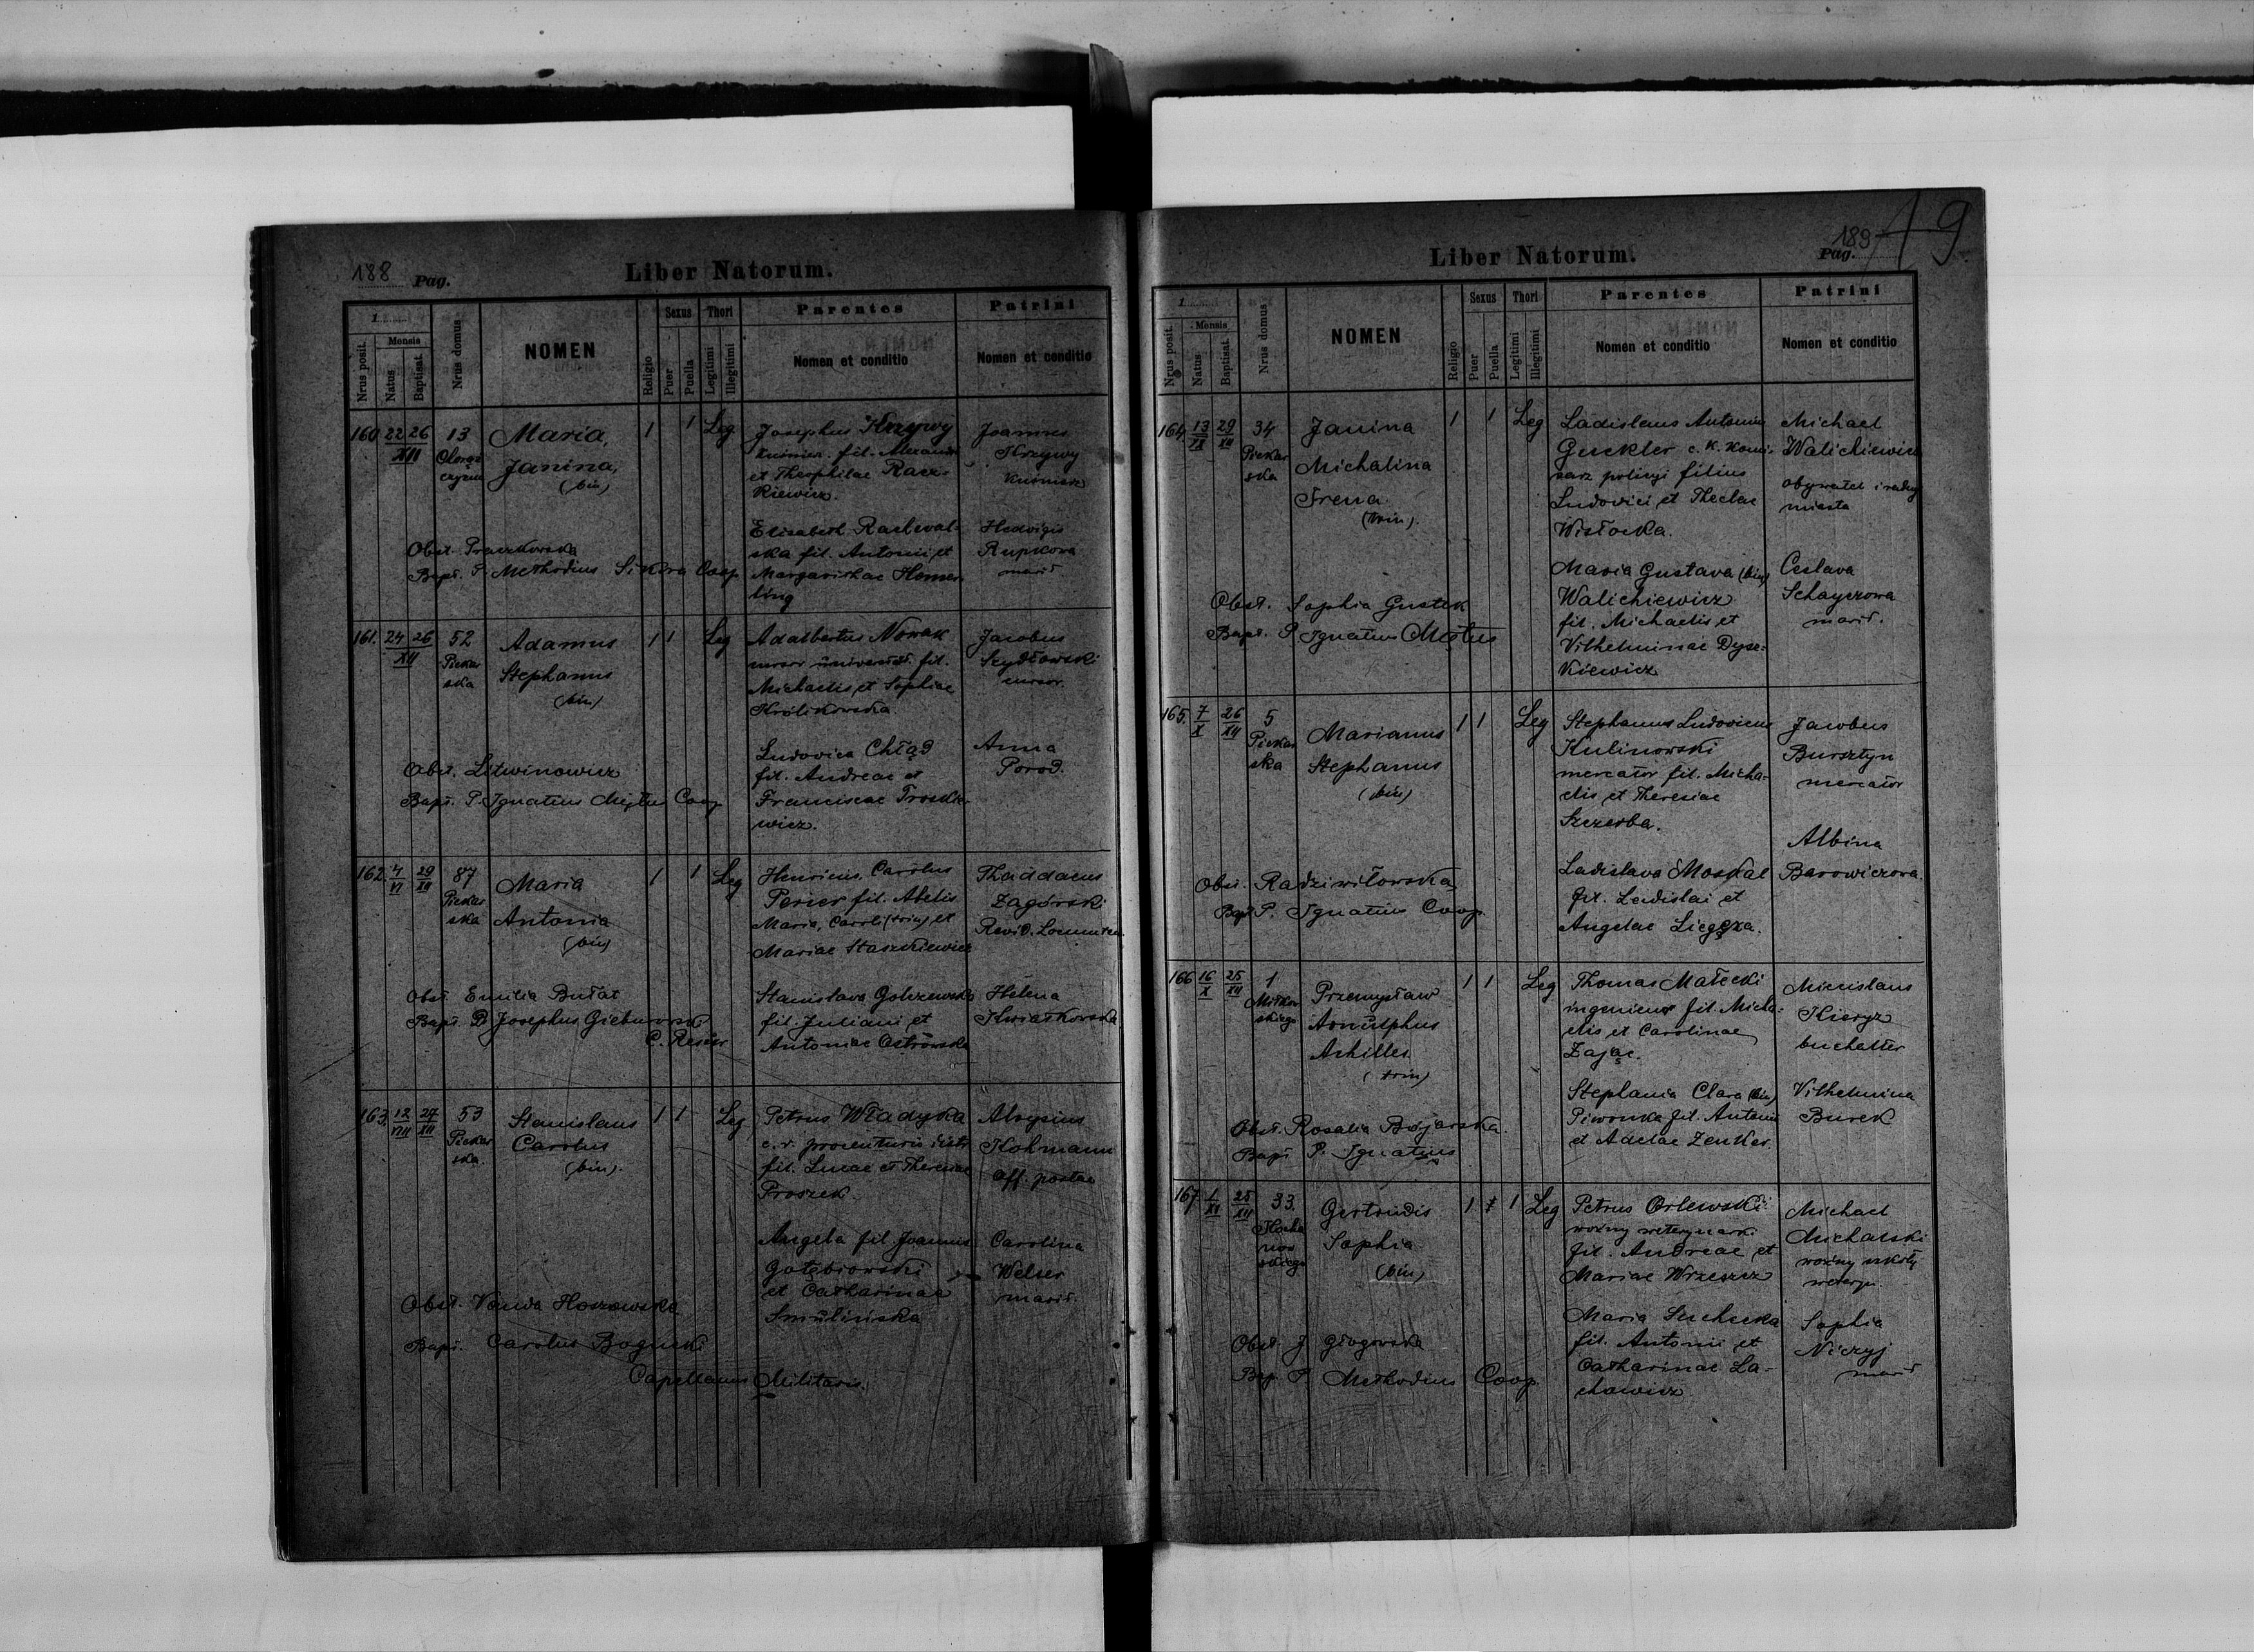 188 Pag.
Liber Natorum.
1
Nrus posit.
Mensis
Natus
Baptisat.
Nrus domus
NOMEN
Religio
Sexus
Puer
Puella
Thori
Legitimi
Illegitimi
Parentes
Nomen et conditio
Patrini
Nomen et conditio
160 22 26 XII
13
Maria,
Janina,
(bin)
1 1 Leg
Josephus Krzywy
kuśnierz fil. Alexandri
et Theophilae Racz-
kiewicz.
Elisabeth Rachwal-
ska fil. Antonii et
Margarithae Homer-
ling
Joannes
Krzywy
kuśnierz
Hedvigis
Rupkowa
marit.
Obst. Praczkowska
Bapt. P. Methodius Sikora Coop
161. 24 26 XII
52
Piekar
ska
Adamus
Stephanus
(bin)
1 1 Leg
Adalbertus Nowak
cursor universit. fil.
Michaelis et Sophiae
Królikowska
Ludovica Chłąd
fil. Andreae et
Franciscae Troszk-
wicz.
Jacobus
Szydłowski
cursor.
Anna
Porod.
Obst. Litwinowicz
Bapt. P. Ignatius Miętus Coop
162. 4 VI 29 XII
87
Piekar
ska
Maria
Antonia
(bin)
1 1 Leg
Henricus Carolus
Perier fil. Abelis
Maria, Caroli (trin) et
Mariae Staszkiewicz
Stanislava Golczewska
fil. Juliani et
Antoniae Ostrowska
Thaddaeus
Zagórski
Revid.
Helena
Kwiatkowska
Obst. Emilia Bułat
Bapt. P. Josephus Gieburowski
163. 12 VIII 27 XII
53
Piekar
ska.
Stanislaus
Carolus
(bin).
1 1 Leg
Petrus Władyka
fil. Lucae et Theresiae
Proszek.
Angela fil. Joannis
Gołębiowski
et Catharinae
Smulińska
Aloysius
Kohmann
Off. postae
Carolina
Welser
marit.
Obst. Vanda Hoszowska
Bapt. Carolus Bogucki
Capellanus Militaris.
189 19.
Pag.
Liber Natorum.
1
Nrus posit.
Mensis
Natus
Baptisat.
Nrus domus
NOMEN
Religio
Sexus
Puer
Puella
Thori
Legitimi
Illegitimi
Parentes
Nomen et conditio
Patrini
Nomen et conditio
164. 13 29 XII
34
Piekar
ska
Janina
Michalina
Irena
(trin).
1 1 Leg
Ladislaus Antonius
Guckler c. k. komi-
sarz policyi filius
Ludovici et Theclae
Wisłocka.
Maria Gustava (bin)
Walichiewicz
fil. Michaelis et
Vilhelminae Dysz-
kiewicz
Michael
Walichiewicz
obywatel i radny
miasta
Ceslava
Schayerowa
marit.
Obst. Sophia Gustek
Bapt. P. Ignatius Miętus
165. 7 X 26 XII
5
Piekar
ska
Marianus
Stephanus
(bin)
1 1 Leg
Stephanus Ludovicus
Kulinowski
mercator fil. Micha-
elis et Theresiae
Szczerba.
Ladislava Moskal
fil. Ladislai et
Angelae Liegęza.
Jacobus
Bursztyn
mercator
Albina
Barowiczowa.
Obst. Radziwiłowska
Bapt. P. Ignatius Coop.
166 16 X 25 XII
1
Przemysław
Arnulphus
Achilles
(trin)
1 1 Leg
Thomas Małecki
ingenieur fil. Micha-
elis et Carolinae
Zając.
Stephania Clara (bin)
Piwonka fil. Antonii
et Adelae Zenker.
Mieceslaus
Kieryz
buchalter
Vilhelmina
Burek
Obst. Rosalia Bojarska.
Bapt P. Ignatius
167. 1 XI 25 XII
33.
Kocha
now
skiego
Gertrudis
Sophia
(bin)
1 1 Leg
Petrus Orlewski
woźny weterynarki
fil. Andreae et
Mariae Wrzeszcz
Maria Suchecka
fil. Antonii et
Catharinae La-
chowicz
Michael
Michalski
woźny szkoły
weteryn.
Sophia
Niczyj
marit
Obst. J Głogowska
Bap. P. Methodius Coop